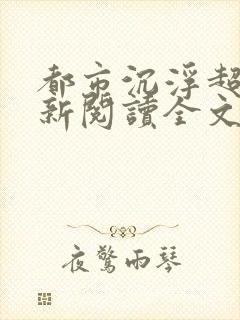 都市沉浮超
新閱讀全文
夜驚雨琴